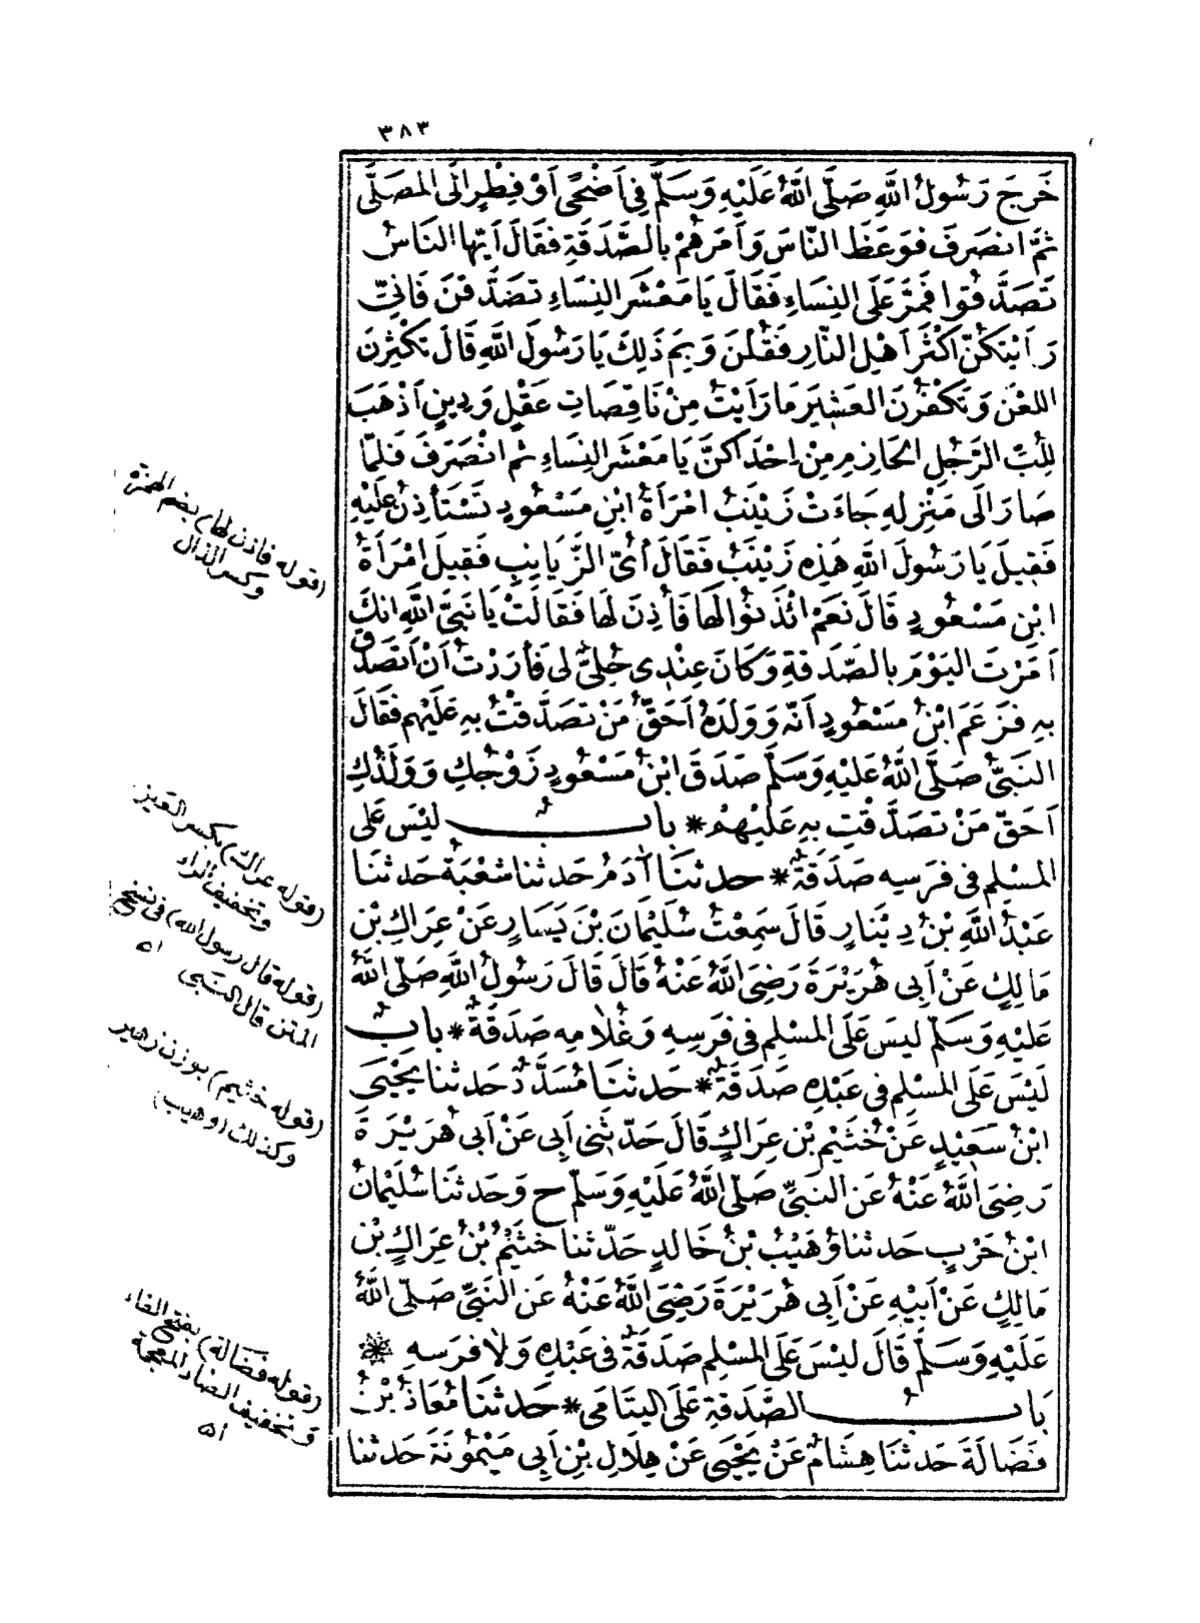 ٣٨٣
خَرَجَ رَسُولُ اللَّهِ صَلَّى اللَّهُ عَلَيْهِ وَسَلَّمَ فِي أَضْحًى أَوْ فِطْرٍ إِلَى المُصَلَّى
ثُمَّ انْصَرَفَ فَوَعَظَ النَّاسَ وَأَمَرَهُمْ بِالصَّدَقَةِ فَقَالَ أَيُّهَا النَّاسُ
تَصَدَّقُوا فَمَرَّ عَلَى النِّسَاءِ فَقَالَ يَا مَعْشَرَ النِّسَاءِ تَصَدَّقْنَ فَإِنِّي
رَأَيْتُكُنَّ أَكْثَرَ أَهْلِ النَّارِ فَقُلْنَ وَبِمَ ذَلِكَ يَا رَسُولَ اللَّهِ قَالَ تُكْثِرْنَ
اللَّعْنَ وَتَكْفُرْنَ العَشِيرَ مَا رَأَيْتُ مِنْ نَاقِصَاتِ عَقْلٍ وَدِينٍ أَذْهَبَ
لِلُبِّ الرَّجُلِ الحَازِمِ مِنْ إِحْدَاكُنَّ يَا مَعْشَرَ النِّسَاءِ ثُمَّ انْصَرَفَ فَلَمَّا
صَارَ إِلَى مَنْزِلِهِ جَاءَتْ زَيْنَبُ امْرَأَةُ ابْنِ مَسْعُودٍ تَسْتَأْذِنُ عَلَيْهِ
فَقِيلَ يَا رَسُولَ اللَّهِ هَذِهِ زَيْنَبُ فَقَالَ أَيُّ الزَّيَانِبِ فَقِيلَ امْرَأَةُ
ابْنِ مَسْعُودٍ قَالَ نَعَمْ ائْذَنُوا لَهَا فَأُذِنَ لَهَا فَقَالَتْ يَا نَبِيَّ اللَّهِ إِنَّكَ
أَمَرْتَ اليَوْمَ بِالصَّدَقَةِ وَكَانَ عِنْدِي حُلِيٌّ لِي فَأَرَدْتُ أَنْ أَتَصَدَّقَ
بِهِ فَزَعَمَ ابْنُ مَسْعُودٍ أَنَّهُ وَوَلَدَهُ أَحَقُّ مَنْ تَصَدَّقْتُ بِهِ عَلَيْهِمْ فَقَالَ
النَّبِيُّ صَلَّى اللَّهُ عَلَيْهِ وَسَلَّمَ صَدَقَ ابْنُ مَسْعُودٍ زَوْجُكِ وَوَلَدُكِ
أَحَقُّ مَنْ تَصَدَّقْتِ بِهِ عَلَيْهِمْ * بابٌ لَيْسَ عَلَى
المُسْلِمِ فِي فَرَسِهِ صَدَقَةٌ * حدثنا آدَمُ حَدثنا شُعْبَةُ حَدثنا
عَبْدُ اللَّهِ بْنُ دِينَارٍ قَالَ سَمِعْتُ سُلَيْمَانَ بْنَ يَسَارٍ عَنْ عِرَاكِ بْنِ
مَالِكٍ عَنْ أَبِي هُرَيْرَةَ رَضِيَ اللَّهُ عَنْهُ قَالَ قَالَ رَسُولُ اللَّهِ صَلَّى اللَّهُ
عَلَيْهِ وَسَلَّمَ لَيْسَ عَلَى المُسْلِمِ فِي فَرَسِهِ وَغُلَامِهِ صَدَقَةٌ * بابٌ
لَيْسَ عَلَى المُسْلِمِ فِي عَبْدِهِ صَدَقَةٌ * حَدثنا مُسَدَّدٌ حَدثنا يَحْيَى
ابْنُ سَعِيدٍ عَنْ خُثَيْمِ بْنِ عِرَاكٍ قَالَ حَدَّثَنِي أَبِي عَنْ أَبِي هُرَيْرَةَ
رَضِيَ اللَّهُ عَنْهُ عَنِ النَّبِيِّ صَلَّى اللَّهُ عَلَيْهِ وَسَلَّمَ ح وَحَدثنا سُلَيْمَانُ
ابْنُ حَرْبٍ حَدثنا وُهَيْبُ بْنُ خَالِدٍ حَدَّثنا خُثَيْمُ بْنُ عِرَاكِ بْنِ
مَالِكٍ عَنْ أَبِيهِ عَنْ أَبِي هُرَيْرَةَ رَضِيَ اللَّهُ عَنْهُ عَنِ النَّبِيِّ صَلَّى اللَّهُ
عَلَيْهِ وَسَلَّمَ قَالَ لَيْسَ عَلَى المُسْلِمِ صَدَقَةٌ فِي عَبْدِهِ وَلَا فَرَسِهِ *
بابُ الصَّدَقَةِ عَلَى اليَتَامَى * حَدثنا مُعَاذُ بْنُ
فَضَالَةَ حَدثنا هِشَامٌ عَنْ يَحْيَى عَنْ هِلَالِ بْنِ أَبِي مَيْمُونَةَ حَدثنا
(قوله فاذن لها) بضم الهمزة
وكسر الذال
(قوله عراك) بكسر العين
وتخفيف الراء
(قوله قال رسول الله) في نسخ
المتن قال النبي اه
(قوله خثيم) بوزن زهير
وكذلك (وهيب)
(قوله فضالة) بفتح الفاء
وتخفيف الضاد المعجمة
اه